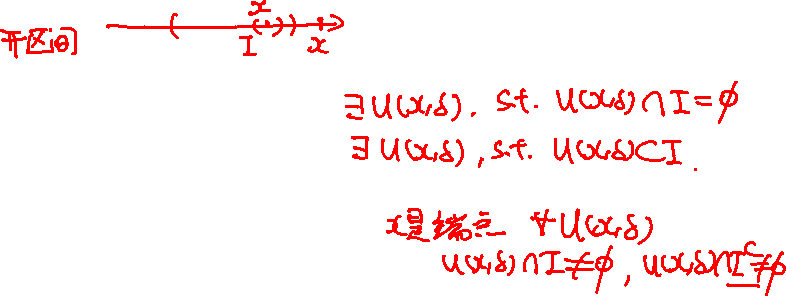 x
开区间 I x
∃U(x,δ), s.t. U(x,δ)∩I=∅
∃U(x,δ), s.t. U(x,δ)⊂I.
x是端点 ∀U(x,δ)
U(x,δ)∩I≠∅, U(x,δ)∩I^c≠∅